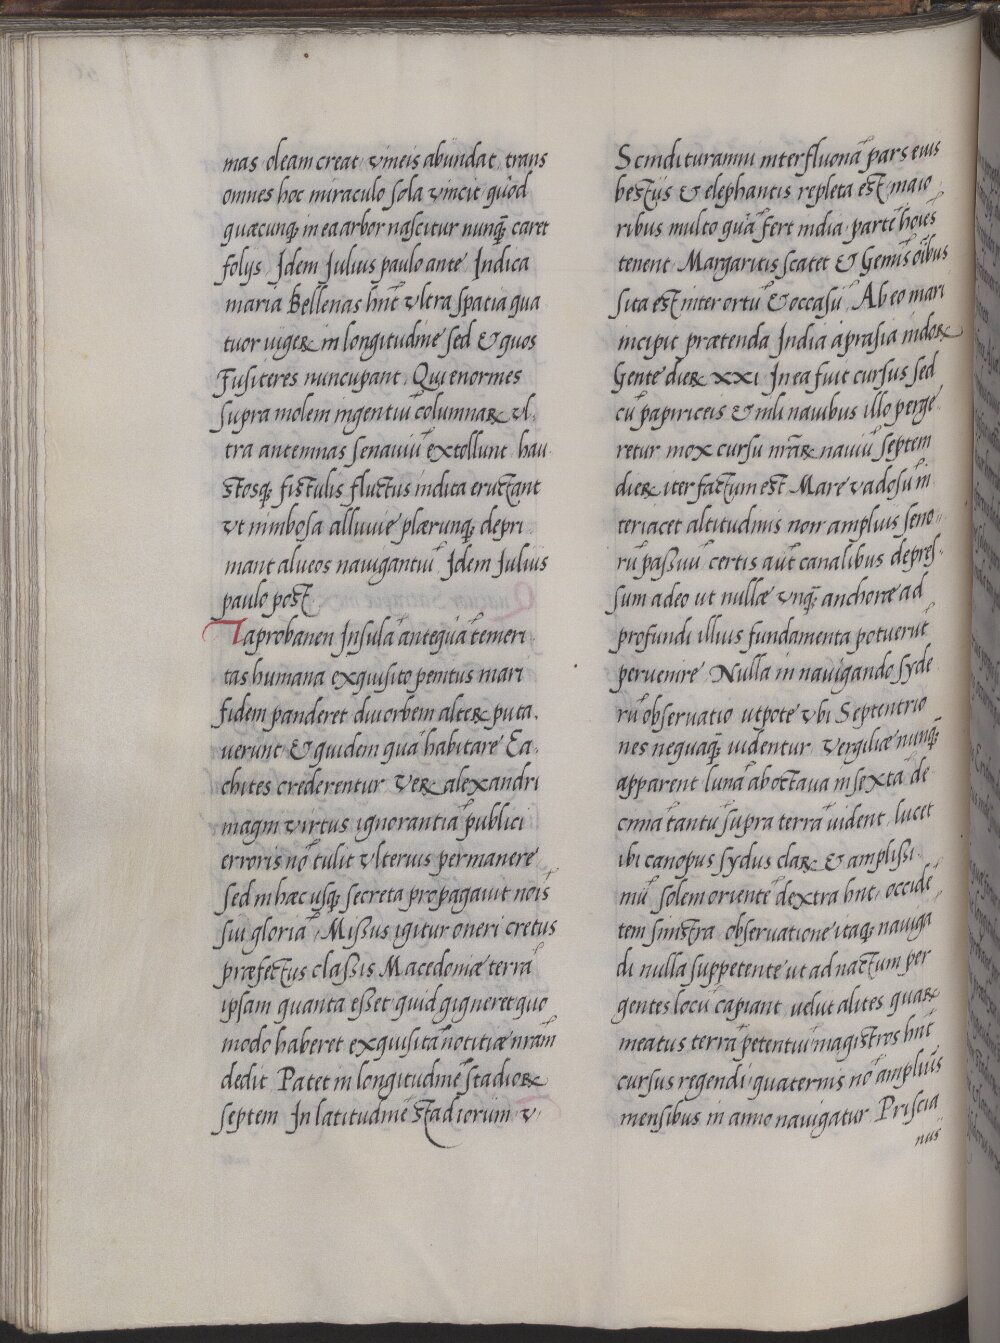 mas oleam creat vineis abundat trans
omnes hoc miraculo sola vincit quod
quæcunq; in ea arbor nascitur nunq̃ caret
folys Idem Julius paulo ante Indica
maria Bellenas hñt vltra spatia qua
tuor iugeꝝ in longitudine sed & quos
Fusiteres nuncupant. Qui enormes
supra molem ingentiū columnaꝝ vl.
tra antemnas se nauiū extollunt hau
stosq; fistulis fluctus indita eructant
vt nimbosa alluuie plærunq; depri
mant alueos nauigantiū Idem Julius
paulo post
Taprobanen Insulā antequā temeri
tas humana exquisito penitus mari
fidem panderet diu orbem alteꝝ puta.
uerunt & quidem quā habitare Ea.
chites crederentur Veꝝ alexandri
magni virtus ignorantiā publici
erroris nō tulit vlterius permanere
sed in hæc usq; secreta propagauit nois̄
sui gloriā Missus igitur oneri cretus
præfectus classis Macedoniæ terrā
ipsam quanta esset quid gigneret quo
modo haberet exquisitā notitiæ nr̄am
dedit Patet in longitudinē stadioꝝ
septem In latitudinē stadiorum v.
Scinditur amni interfluonā pars eius
bestiis & elephantis repleta est maio
ribus multo quā fert india partē hoīes
tenent Margaritis scatet & Gemīs oībus
sita est inter ortū & occasū Ab eo mari
incipit prætenda India a prasia indoꝝ
Gente dieꝝ xxi In ea fuit cursus sed
cū papiriceis & nili nauibus illo perge
retur mox cursu nr̄aꝝ nauiū septem
dieꝝ iter factum est Mare vadosū in
teriacet altitudinis non amplius seno-
rū passuū certis aūt canalibus depres-
sum adeo ut nullæ vnq̃ anchoræ ad
profundi illius fundamenta potuerūt
peruenire Nulla in nauigando syde
rū obseruatio utpote vbi Septentrio
nes nequaq̃ uidentur Vergiliæ nunq̃
apparent lunā ab octaua in sextā de
cimā tantū supra terrā uident lucet
ibi canopus sydus claꝝ & amplissi
mū solem orientē dextra hñt occidē
tem sinistra obseruatione itaq; nauigā
di nulla suppetente ut ad nactum per
gentes locū capiant uelut alites quaꝝ
meatus terrā petentiū magistros hñt
cursus regendi quaternis nō ampliūs
mensibus in anno nauigatur Priscia
nus